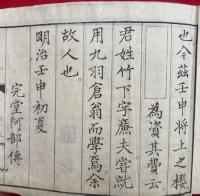 也今茲壬申將上之櫻
為資其費云
君姓竹下字廉夫嘗就
用九羽倉翁而學焉余
故人也
明治壬申初夏
完堂阿部傳